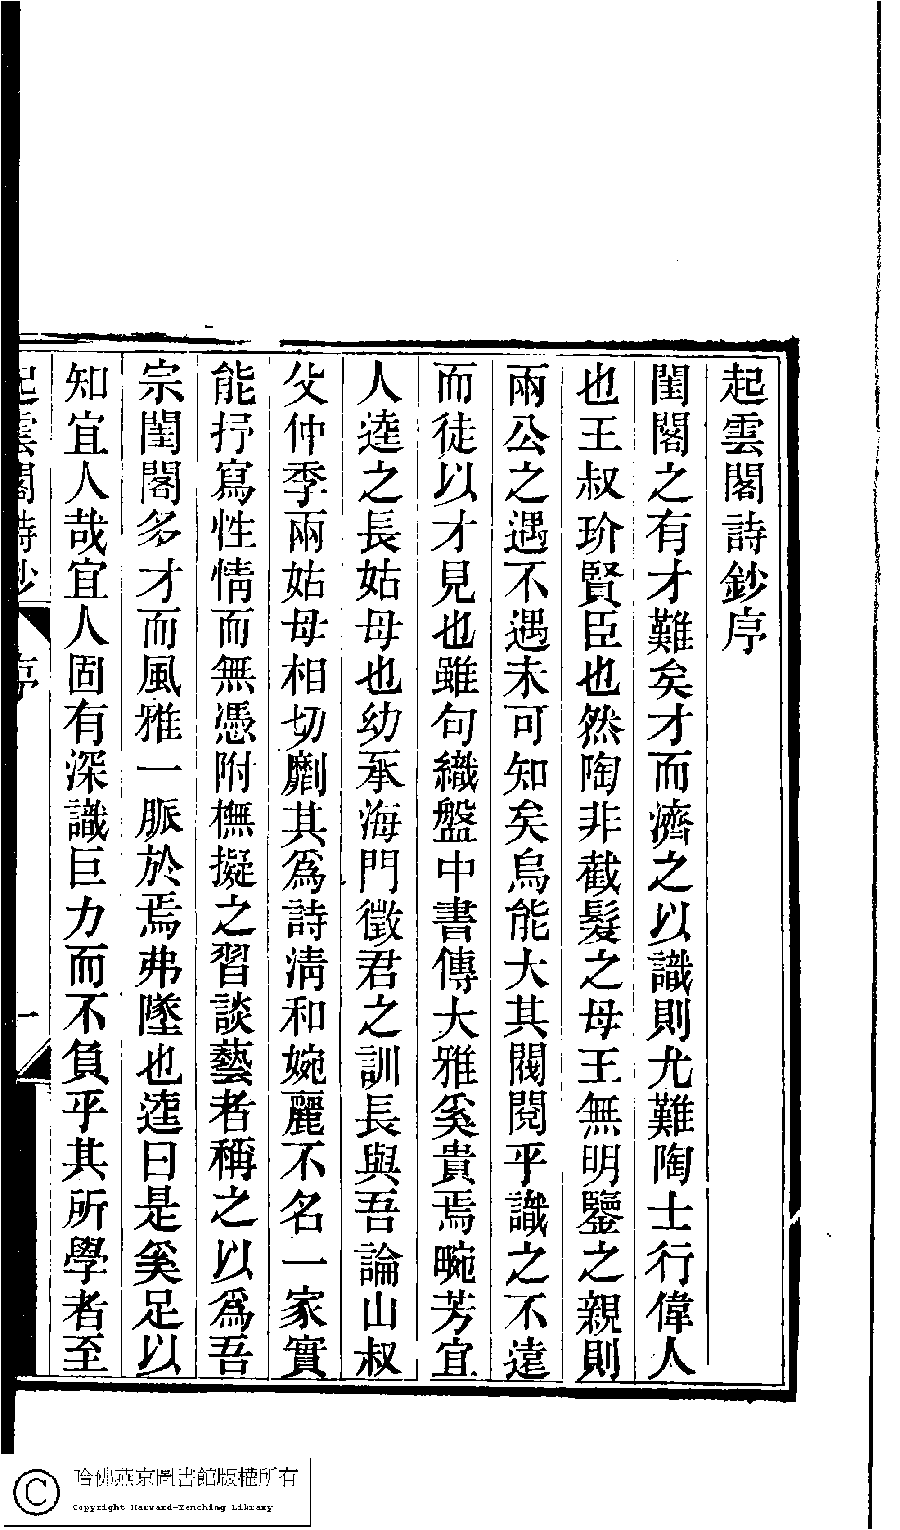 起雲閣詩鈔序
閨閣之有才難矣才而濟之以識則尤難陶士行偉人
也王叔玠賢臣也然陶非截髮之母王無明鑒之親則
兩公之遇不遇未可知矣烏能大其閥閱乎識之不遠
而徒以才見也雖句織盤中書傳大雅奚貴焉畹芳宜
人逵之長姑母也幼承海門徵君之訓長與吾論山叔
父仲季兩姑母相切劘其爲詩淸和婉麗不名一家實
能抒寫性情而無憑附橅擬之習談藝者稱之以爲吾
宗閨閣多才而風雅一脈於焉弗墜也逵曰是奚足以
知宜人哉宜人固有深識巨力而不負乎其所學者至
起雲閣詩鈔 序 一
哈佛燕京圖書館版權所有
Copyright Harvard-Yenching Library